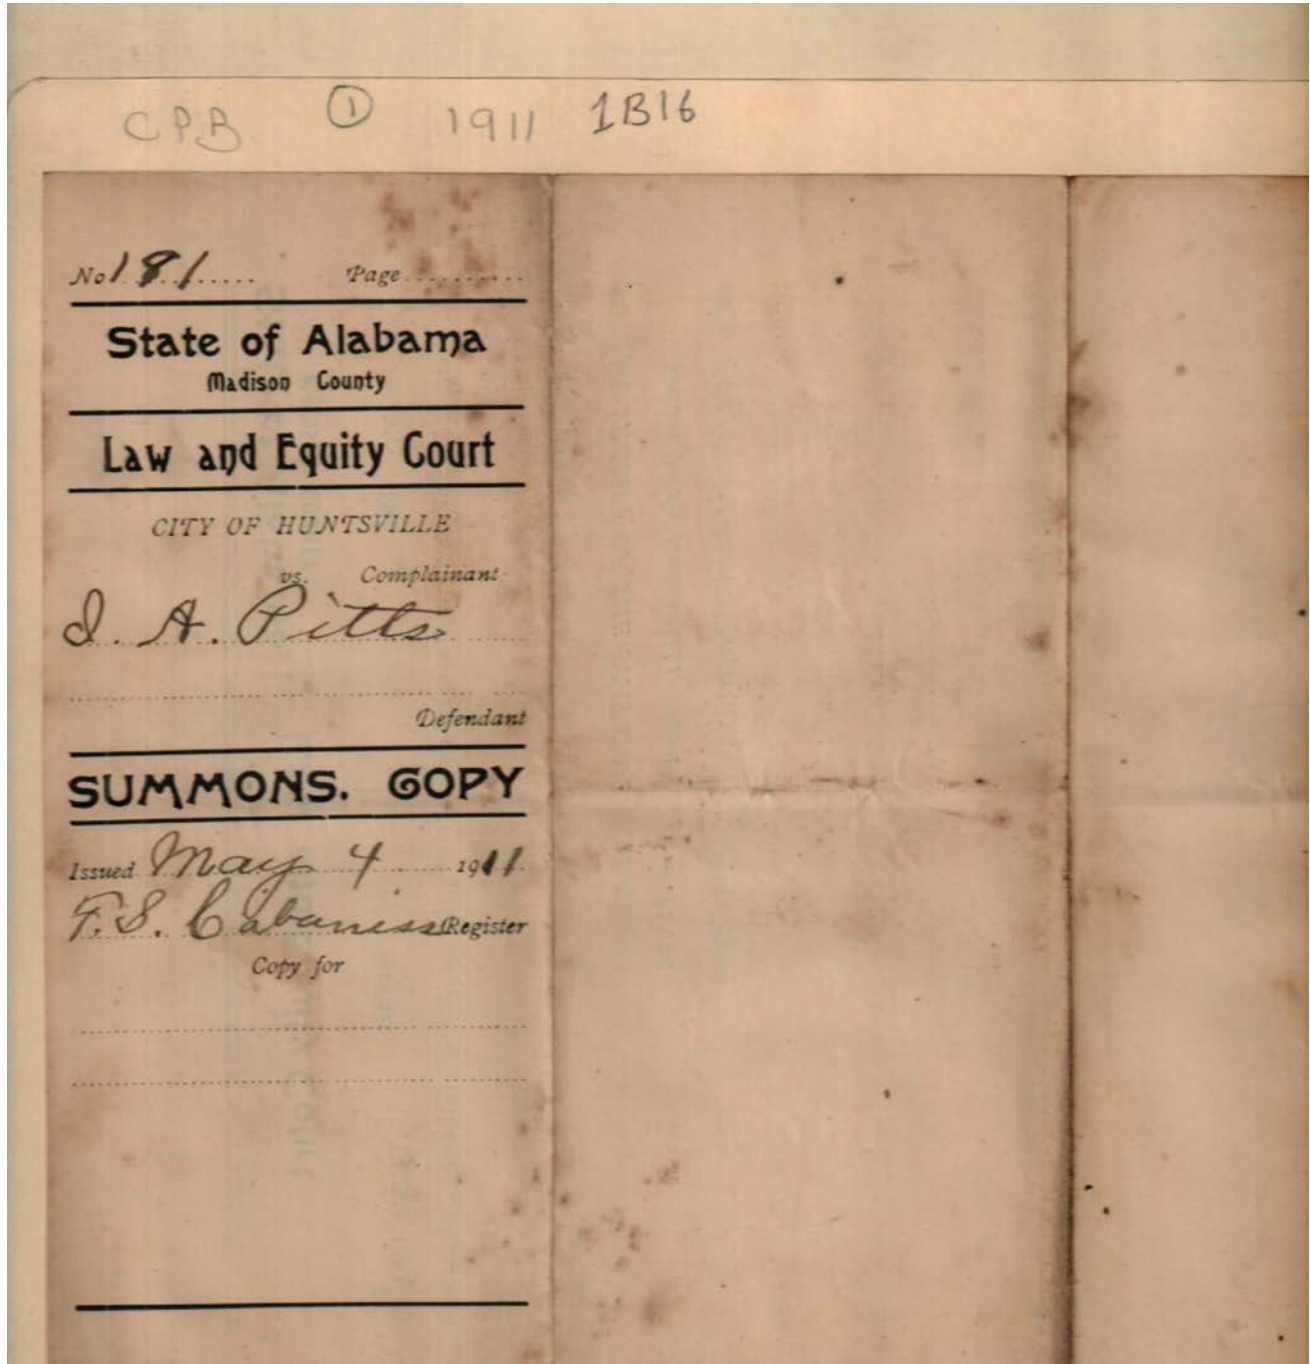 CPB ① 1911 1B16
No 181..... Page..........
State of Alabama
Madison County
Law and Equity Court
CITY OF HUNTSVILLE
vs. Complainant
I. A. Pitts
Defendant
SUMMONS. COPY
Issued May 4 1911
F. S. Cabaniss Register
Copy for